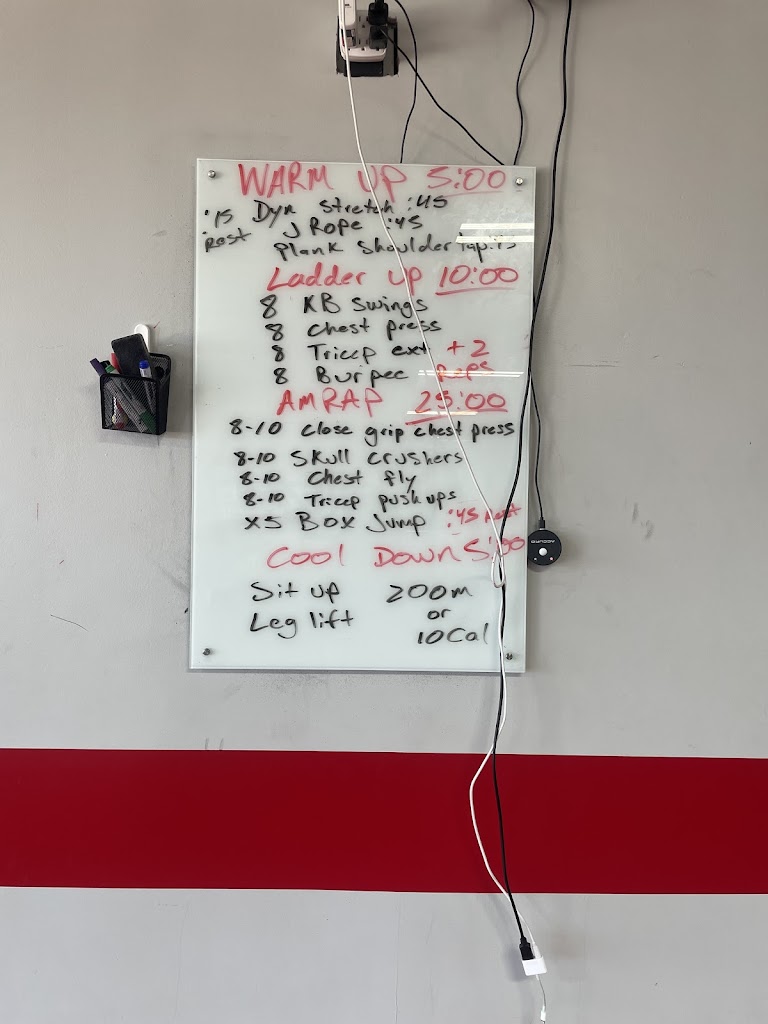 WARM UP 5:00
:15 Dyn Stretch :45
Rest J Rope :45
Plank Shoulder Tap :15
Ladder up 10:00
8 KB Swings
8 Chest press
8 Tricep ext +2
8 Burpee Reps
AMRAP 25:00
8-10 Close grip chest press
8-10 Skull Crushers
8-10 Chest fly
8-10 Tricep push ups
X5 Box Jump :45 Rest
Cool Down 5:00
Sit up 200m
or
Leg lift 10 Cal